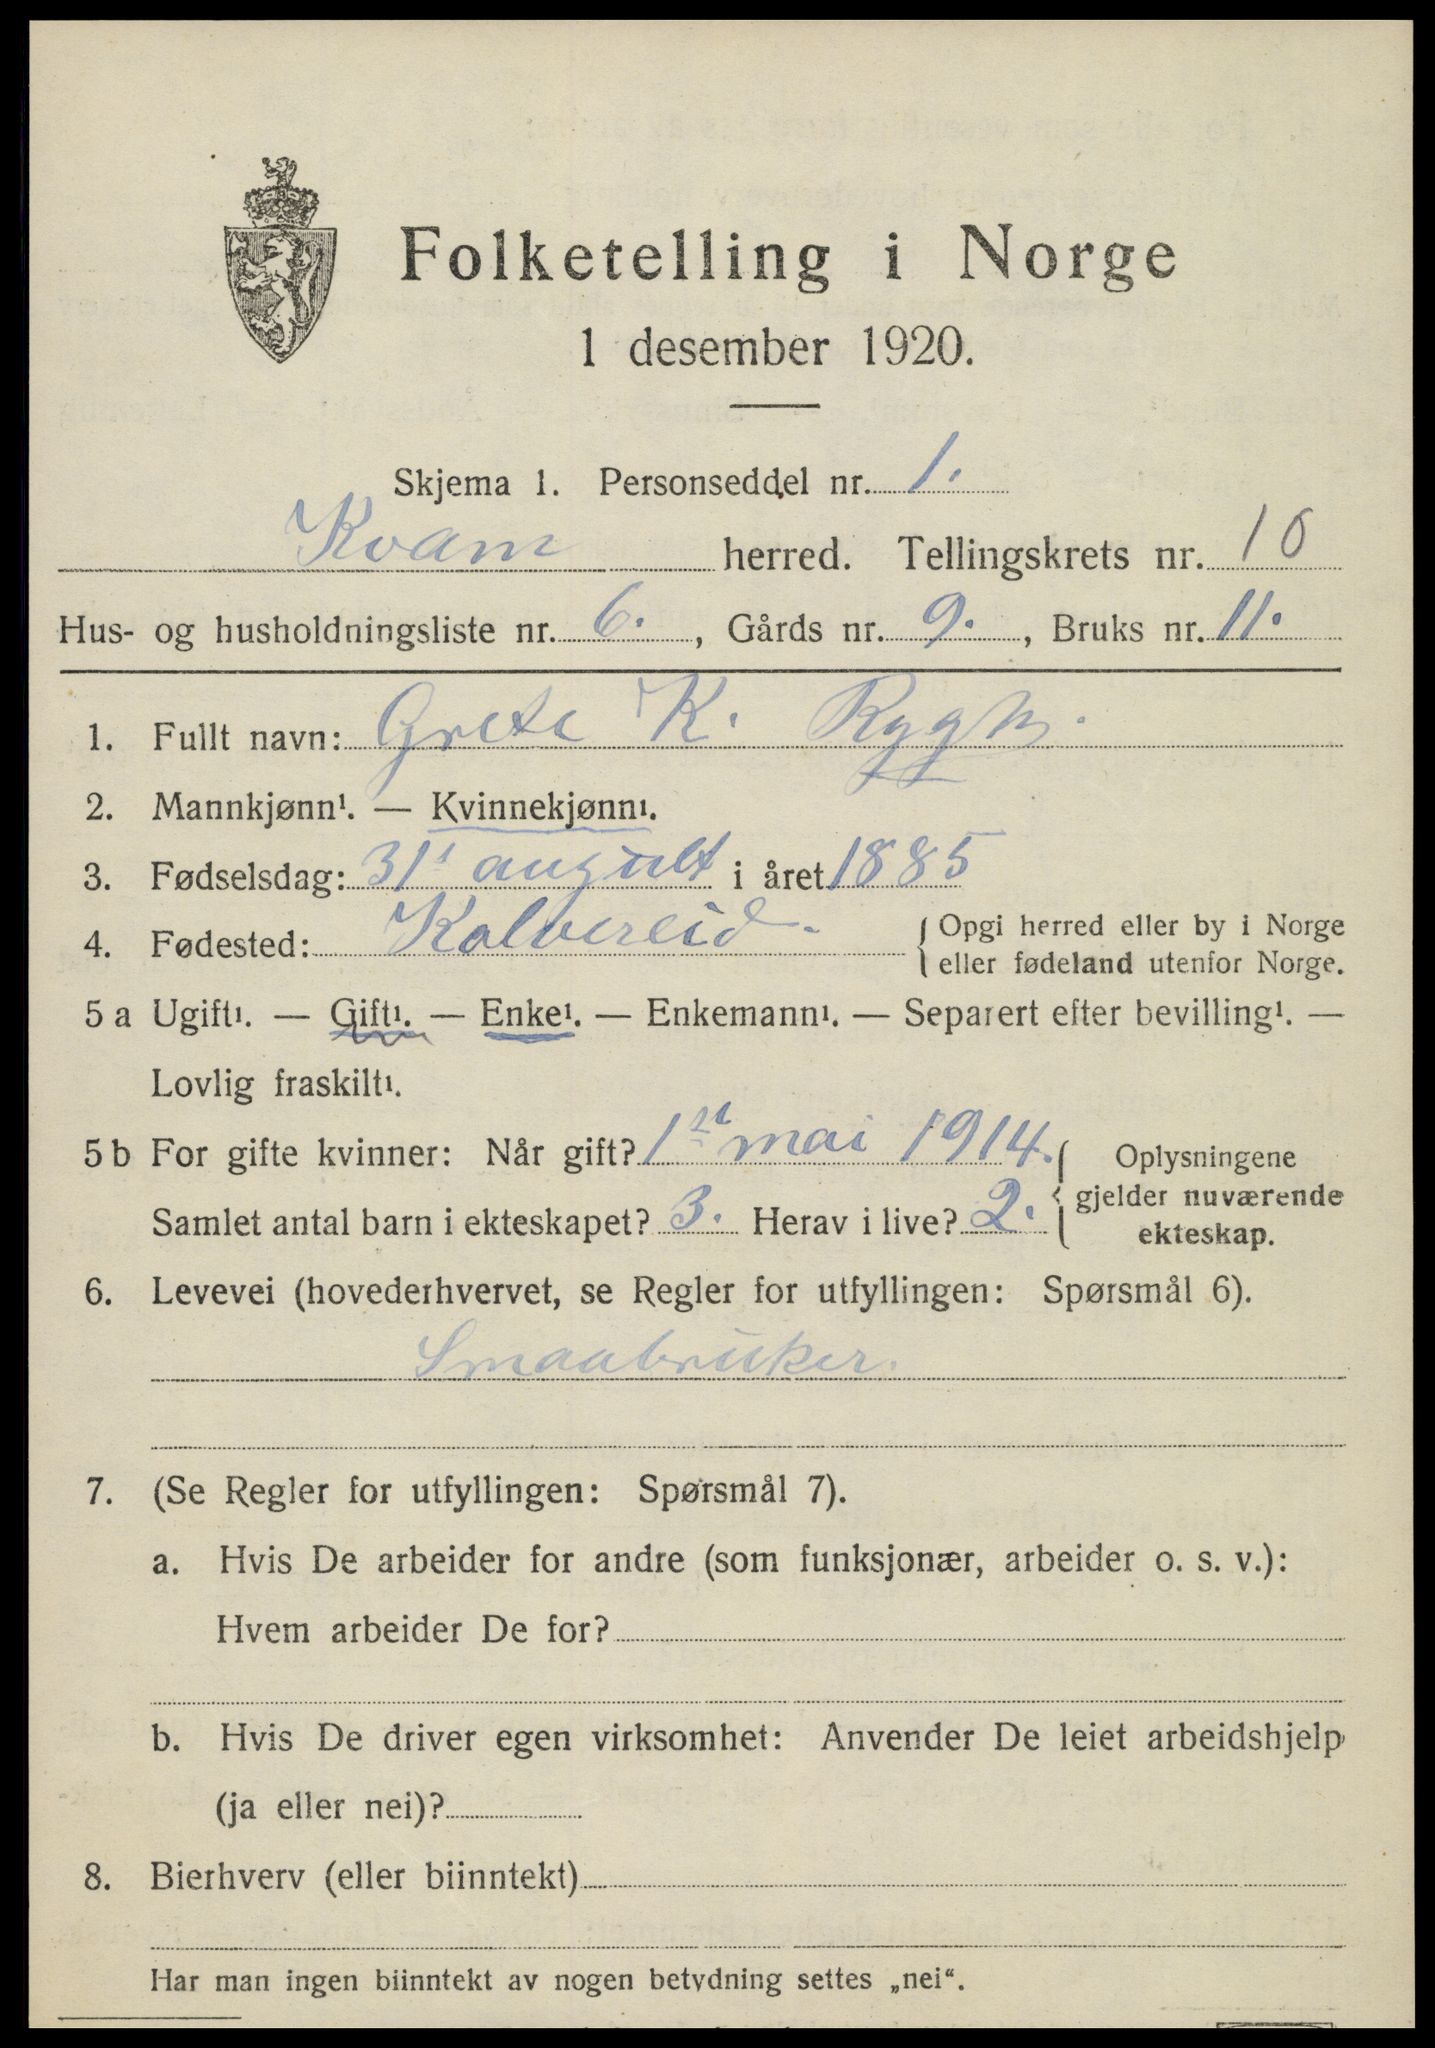 Folketelling i Norge
1 desember 1920.
Skjema 1. Personseddel nr. 1.
Kvam herred. Tellingskrets nr. 10
Hus- og husholdningsliste nr. 6. , Gårds nr. 9. , Bruks nr. 11.
1. Fullt navn: Grete K. Rygh.
2. Mannkjønn¹. — Kvinnekjønn¹.
3. Fødselsdag: 31' august i året 1885
4. Fødested: Kolvereid. { Opgi herred eller by i Norge
eller fødeland utenfor Norge.
5 a Ugift¹. — Gift¹. — Enke¹. — Enkemann¹. — Separert efter bevilling¹. —
Lovlig fraskilt¹.
5 b For gifte kvinner: Når gift? 1ste mai 1914. { Oplysningene
gjelder nuværende
Samlet antal barn i ekteskapet? 3. Herav i live? 2.
ekteskap.
6. Levevei (hovederhvervet, se Regler for utfyllingen: Spørsmål 6).
Smaabruker.
7. (Se Regler for utfyllingen: Spørsmål 7).
a. Hvis De arbeider for andre (som funksjonær, arbeider o. s. v.):
Hvem arbeider De for?
b. Hvis De driver egen virksomhet: Anvender De leiet arbeidshjelp
(ja eller nei)?
8. Bierhverv (eller biinntekt)
Har man ingen biinntekt av nogen betydning settes „nei“.